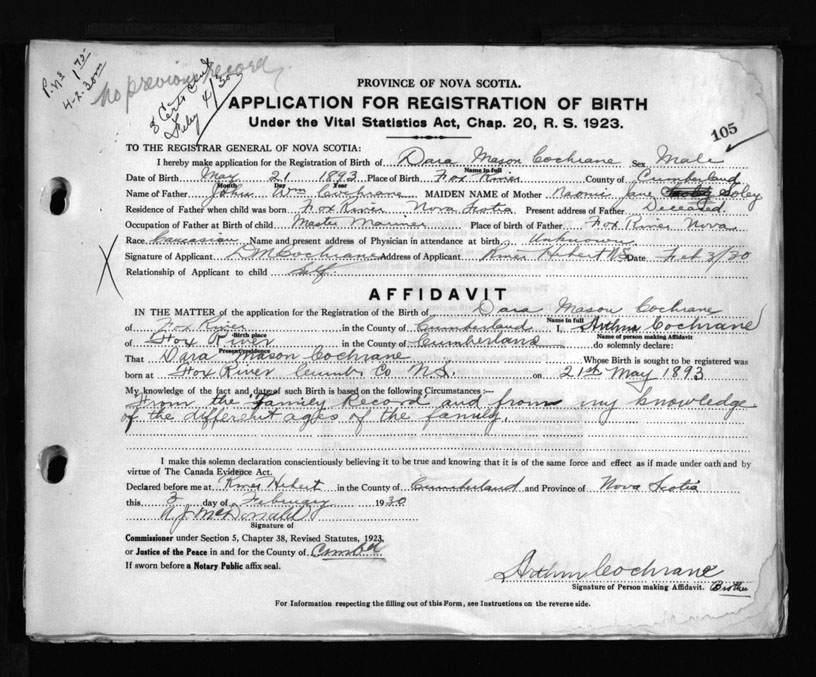 P.N.S 1 75
4-2-30
no previous record
3 Certs sent
Feby 4/30
PROVINCE OF NOVA SCOTIA.
APPLICATION FOR REGISTRATION OF BIRTH
Under the Vital Statistics Act, Chap. 20, R. S. 1923.
105
TO THE REGISTRAR GENERAL OF NOVA SCOTIA:
I hereby make application for the Registration of Birth of Dara Mason Cochrane Sex Male
Name in full
Date of Birth May 21 1893 Place of Birth Fox River County of Cumberland
Month Day Year
Name of Father John Wm Cochrane MAIDEN NAME of Mother Naomi Jane Soley
Residence of Father when child was born Fox River Nova Scotia Present address of Father Deceased
Occupation of Father at Birth of Child Master Mariner Place of birth of Father Fox River Nova
Race Caucasian Name and present address of Physician in attendance at birth Unknown
Signature of Applicant D M Cochrane Address of Applicant River Hebert NS Date Feb 3/30
Relationship of Applicant to child Self
AFFIDAVIT
IN THE MATTER of the application for the Registration of the Birth of Dara Mason Cochrane
Name in full
of Fox River in the County of Cumberland I, Arthur Cochrane
Birth place Name of person making Affidavit
of Fox River in the County of Cumberland do solemnly declare:
Present residence
That Dara Mason Cochrane Whose Birth is sought to be registered was
born at Fox River Cumb. Co N.S. on 21st May 1893
My knowledge of the fact and date of such Birth is based on the following Circumstances :—
From the family Record and from my knowledge
of the different ages of the family.
I make this solemn declaration conscientiously believing it to be true and knowing that it is of the same force and effect as if made under oath and by
virtue of The Canada Evidence Act.
Declared before me at River Hebert in the County of Cumberland and Province of Nova Scotia
this 3 day of February 1930
A J McDonald
Signature of
Commissioner under Section 5, Chapter 38, Revised Statutes, 1923,
or Justice of the Peace in and for the County of Cumb'd
If sworn before a Notary Public affix seal.
Arthur Cochrane
Signature of Person making Affidavit. Brother
For Information respecting the filling out of this Form, see Instructions on the reverse side.